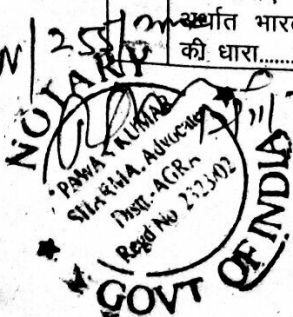 अर्थात भारत
की धारा........
NOTARY
PAWAN KUMAR
SHARMA, Advocate
Distt.-AGRA
Regd No 2323/02
GOVT OF INDIA